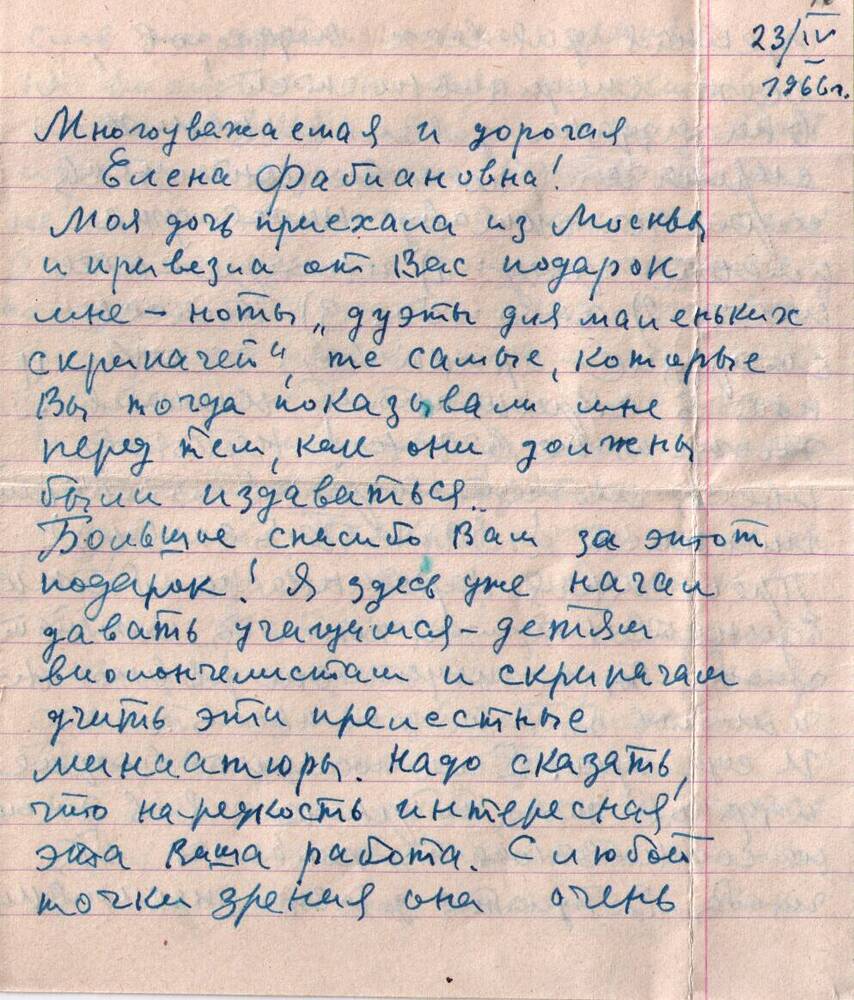 23/IV
1966 г.
Многоуважаемая и дорогая
Елена Фабиановна!
Моя дочь приехала из Москвы
и привезла от Вас подарок
мне – ноты „дуэты для маленьких
скрипачей", те самые, которые
Вы тогда показывали мне
перед тем, как они должны
были издаваться..
Большое спасибо Вам за этот
подарок! Я здесь уже начал
давать учащимся – детям
виолончелистам и скрипачам
учить эти прелестные
миниатюры. Надо сказать,
что на редкость интересная
эта Ваша работа. С любой
точки зрения она очень